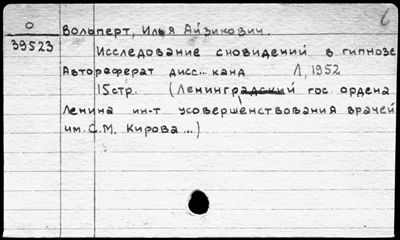 О
39523
Вольперт, Илья Айзикович.
Исследование сновидений в гипнозе
Автореферат дисс... канд Л, 1952
15стр. (Ленинградский гос ордена
Ленина ин-т усовершенствования врачей
им. С.М. Кирова...)